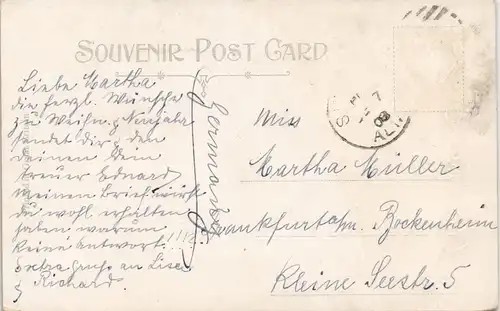 SOUVENIR POST CARD
Liebe Martha
die herzl. Wünsche
zu Weihn. & Neujahr
sendet dir & den
Deinen Dein
treuer Eduard
Meinen Brief wirst
du wohl erhalten
haben warum
keine Antwort!!!?
Extra gruss an Lises
& Richard
Germany
Miss
Martha Müller
Frankfurt a/m. Bockenheim
Kleine Seestr. 5
7
08